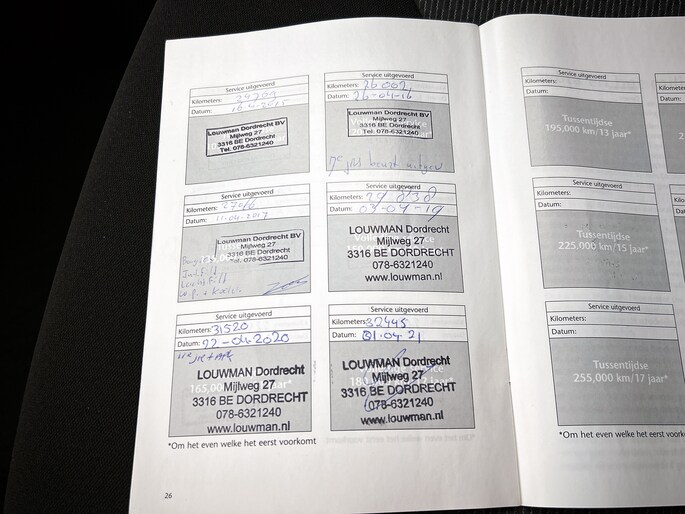 Service uitgevoerd
Kilometers: 24299
Datum: 16-4-2015
Louwman Dordrecht BV
Mijlweg 27
3316 BE Dordrecht
Tel. 078-6321240
Service uitgevoerd
Kilometers: 26002
Datum: 26-04-16
Louwman Dordrecht BV
Mijlweg 27
3316 BE Dordrecht
Tel. 078-6321240
Service uitgevoerd
Kilometers: 27016
Datum: 11-04-2017
Louwman Dordrecht BV
Mijlweg 27
3316 BE Dordrecht
Tel. 078-6321240
Service uitgevoerd
Kilometers: 29 838
Datum: 03-04-19
LOUWMAN Dordrecht
Mijlweg 27
3316 BE DORDRECHT
078-6321240
www.louwman.nl
Service uitgevoerd
Kilometers: 31520
Datum: 22-04 2020
LOUWMAN Dordrecht
Mijlweg 27
165,000
3316 BE DORDRECHT
078-6321240
www.louwman.nl
Service uitgevoerd
Kilometers: 32445
Datum: 01.04 21
LOUWMAN Dordrecht
Mijlweg 27
3316 BE DORDRECHT
078-6321240
www.louwman.nl
*Om het even welke het eerst voorkomt
26
Service uitgevoerd
Kilometers:
Datum:
Tussentijdse
195,000 km/13 jaar*
Service uitgevoerd
Kilometers:
Datum:
Tussentijdse
225,000 km/15 jaar*
Service uitgevoerd
Kilometers:
Datum:
Tussentijdse
255,000 km/17 jaar*
*Om het even welke het eerst voorko